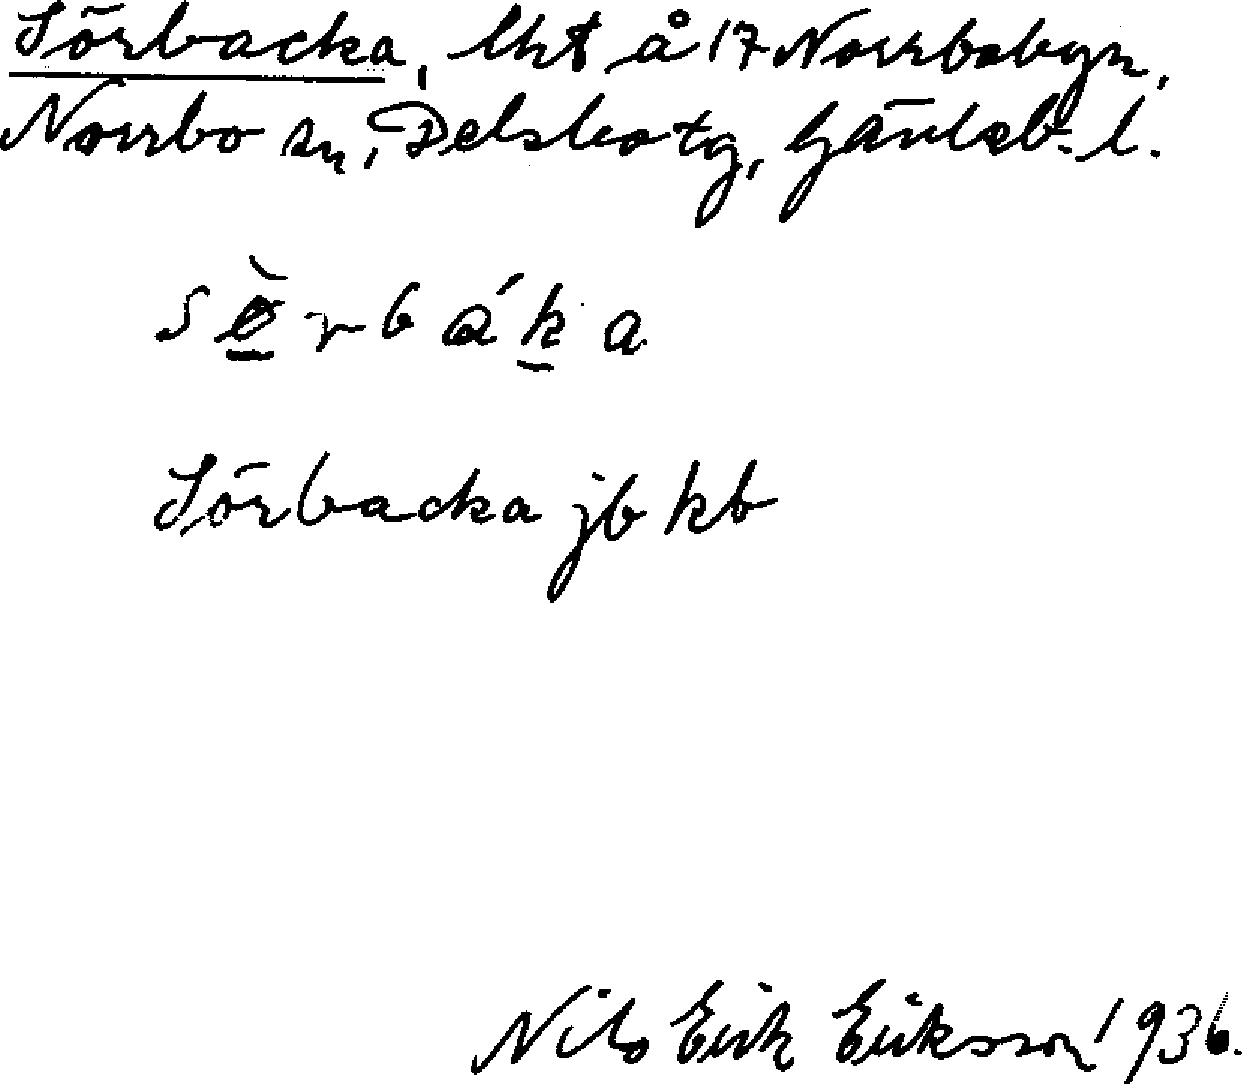 Sörbacka, lht å 17 Norrbobyn,
Norrbo sn, Delsbo tg, Gävleb. l.
sø̀rbáka
Sörbacka jb kb
Nils Erik Eriksson 1936.